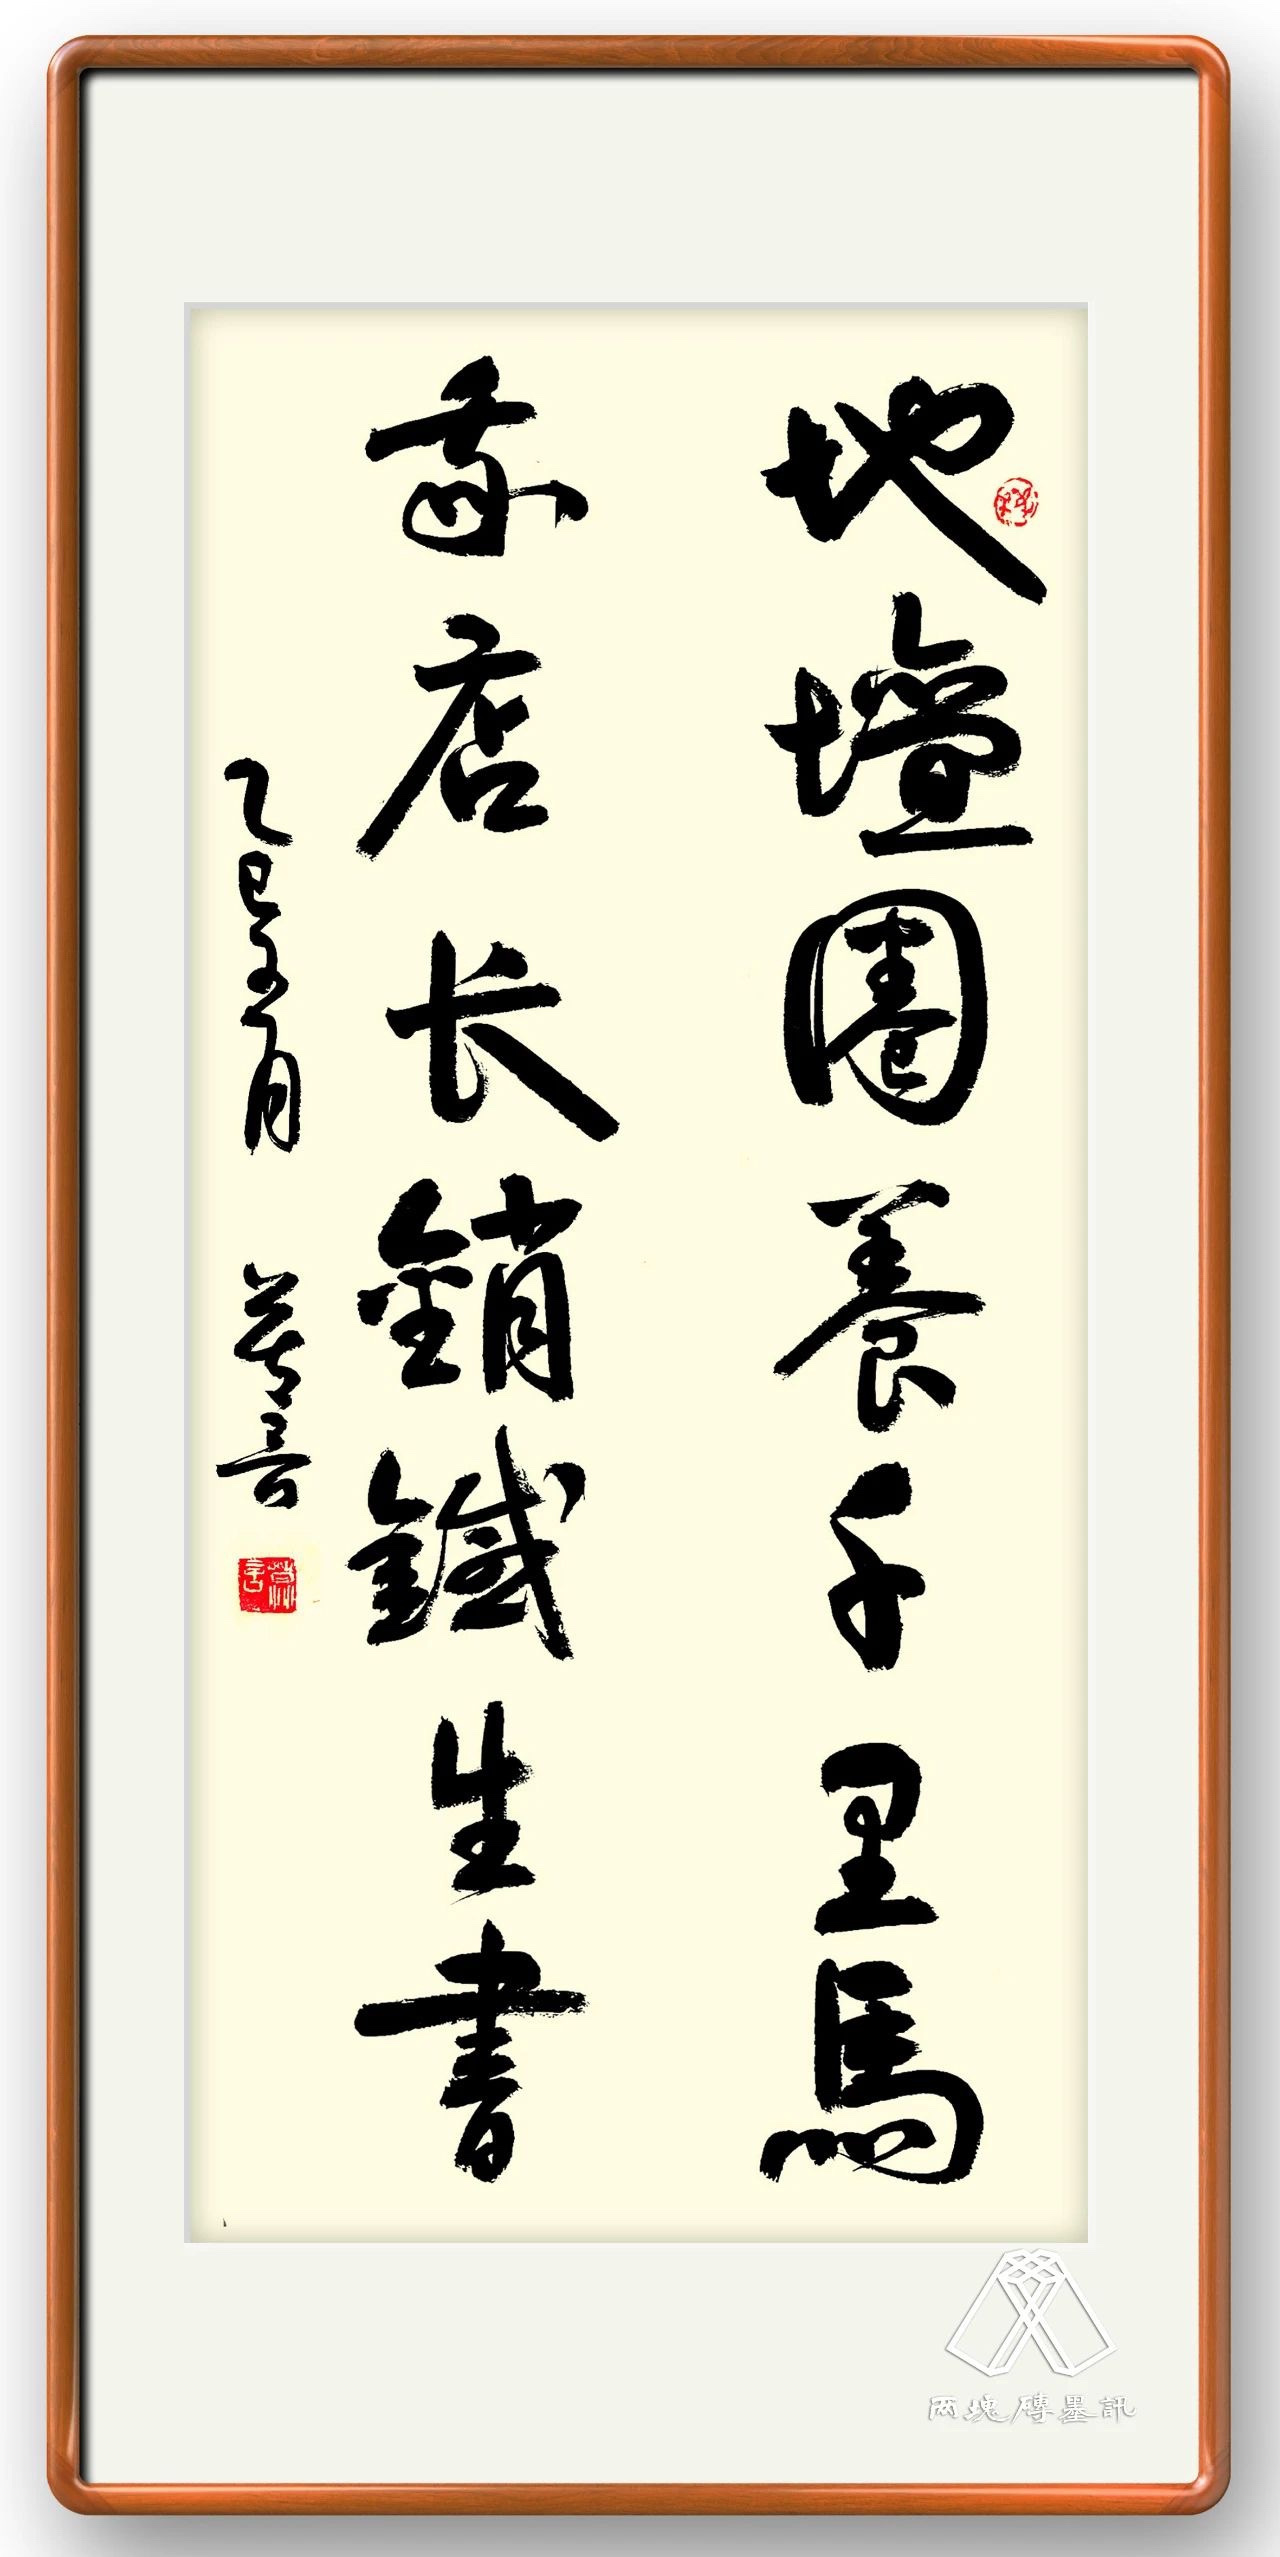 地壇圈養千里馬
我店长銷鐵生書
乙巳 月
两塊磚墨訊